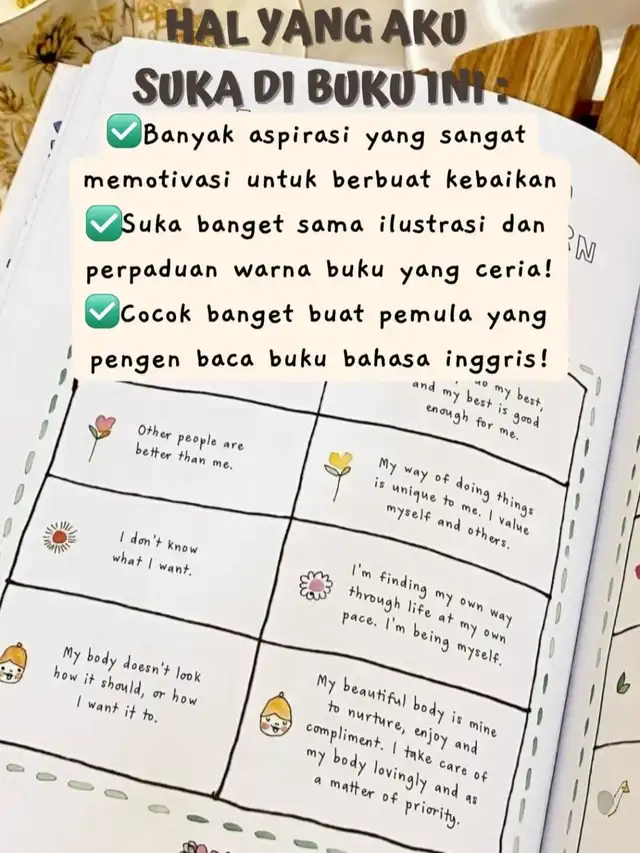 HAL YANG AKU
SUKA DI BUKU INI :
✅Banyak aspirasi yang sangat
memotivasi untuk berbuat kebaikan
✅Suka banget sama ilustrasi dan
perpaduan warna buku yang ceria!
✅Cocok banget buat pemula yang
pengen baca buku bahasa inggris!
my best,
and my best is good
enough for me.
Other people are
better than me.
My way of doing things
is unique to me. I value
myself and others.
I don't know
what I want.
I'm finding my own way
through life at my own
pace. I'm being myself.
My body doesn't look
how it should, or how
I want it to.
My beautiful body is mine
to nurture, enjoy and
compliment. I take care of
my body lovingly and as
a matter of priority.